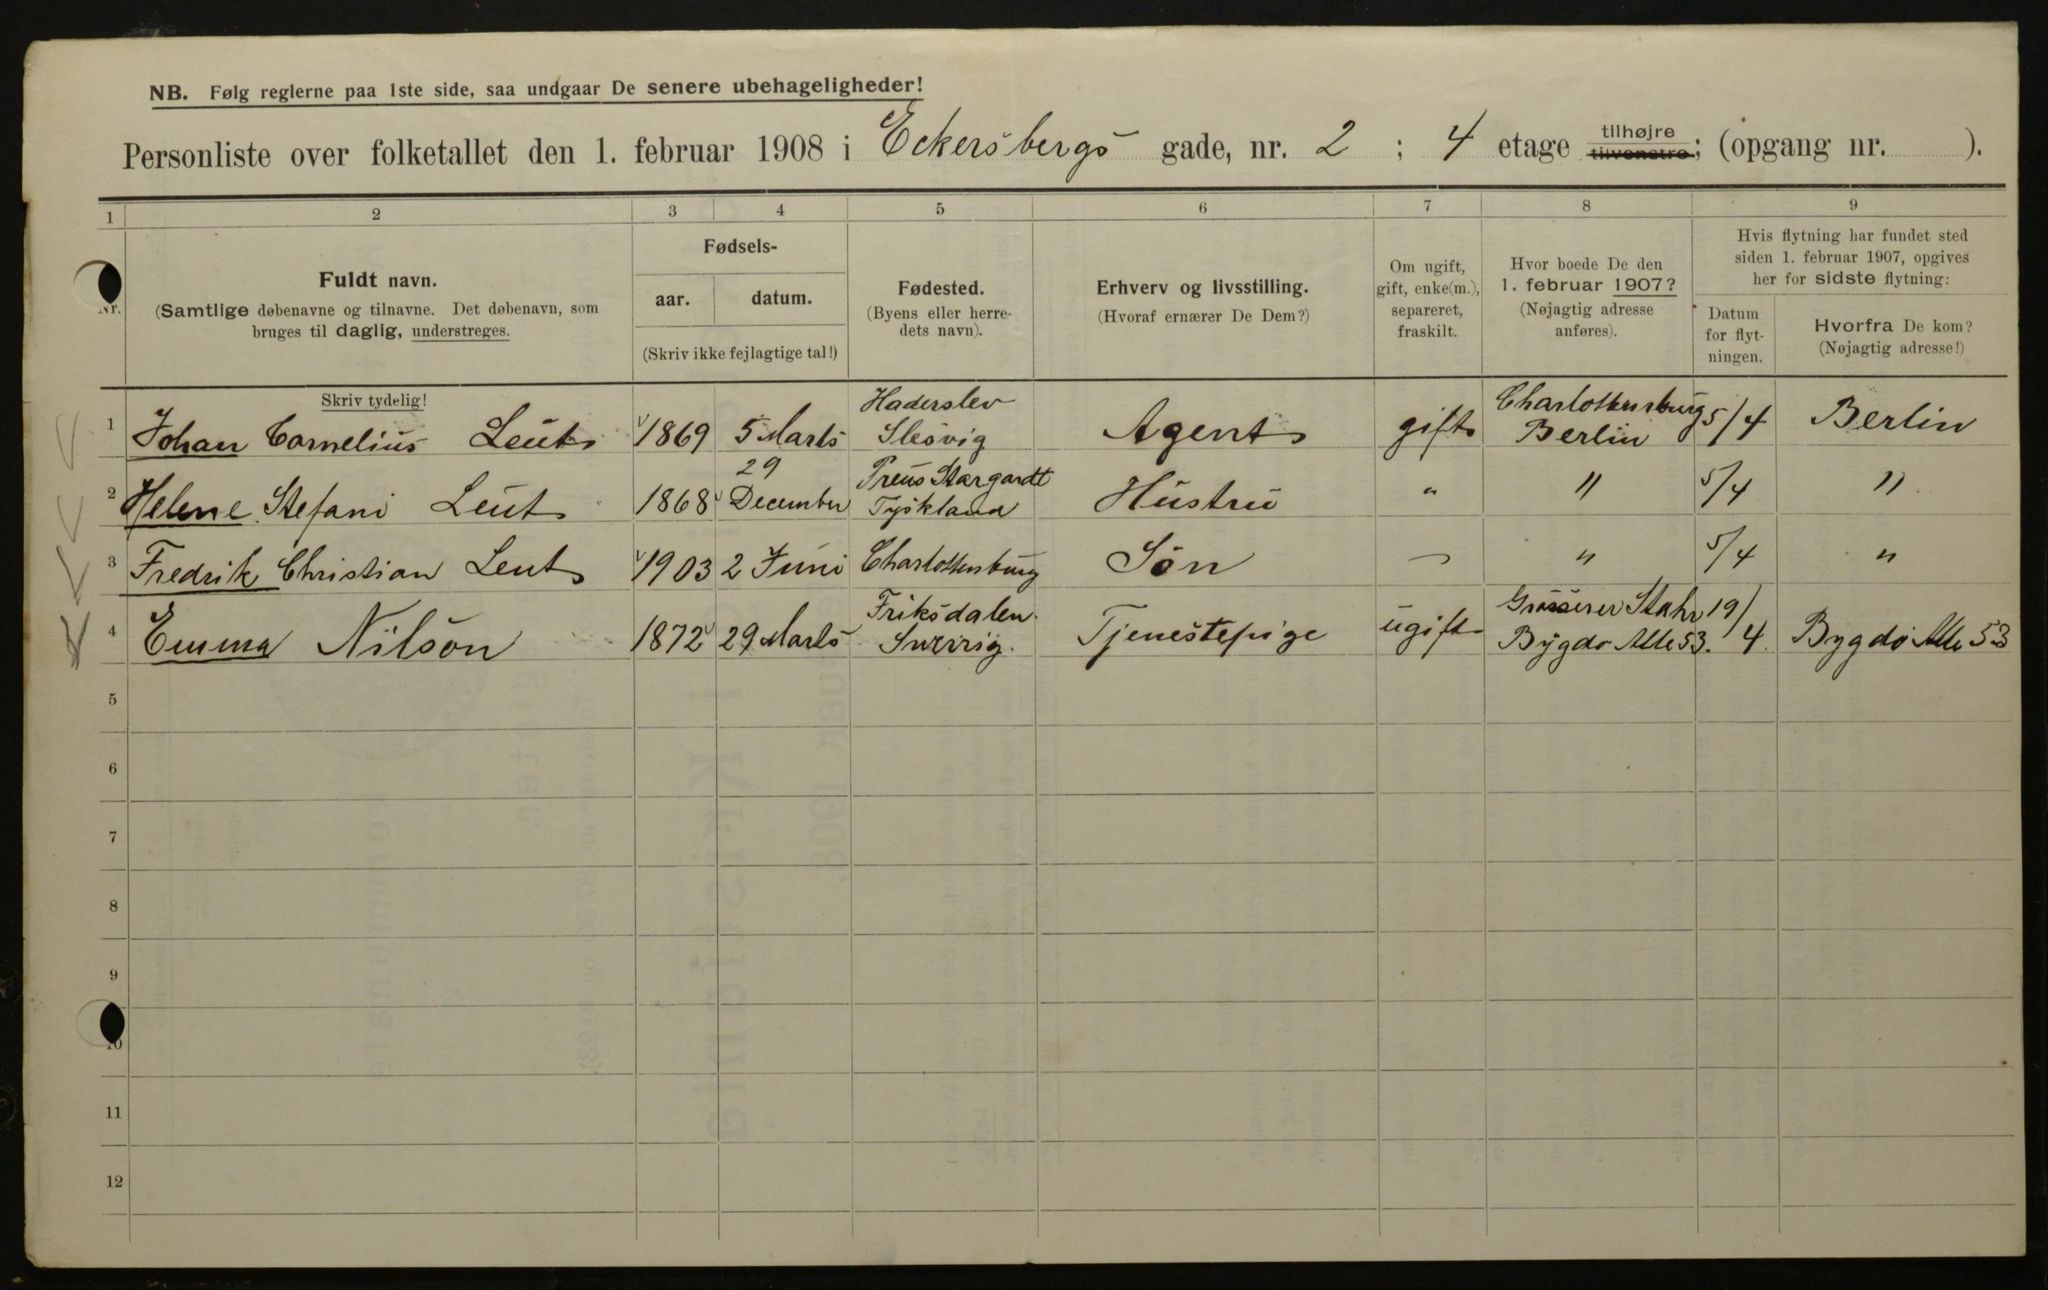 NB. Følg reglerne paa 1ste side, saa undgaar De senere ubehageligheder!
Personliste over folketallet den 1. februar 1908 i Eckersbergs gade, nr. 2 ; 4 etage tilhøjre tilvenstre; (opgang nr. ).
1 2 3 4 5 6 7 8 9
Nr.
Fuldt navn.
(Samtlige døbenavne og tilnavne. Det døbenavn, som
bruges til daglig, understreges.
Skriv tydelig!
Fødsels-
aar. datum.
(Skriv ikke fejlagtige tal!)
Fødested.
(Byens eller herre-
dets navn).
Erhverv og livsstilling.
(Hvoraf ernærer De Dem?)
Om ugift,
gift, enke(m.),
separeret,
fraskilt.
Hvor boede De den
1. februar 1907?
(Nøjagtig adresse
anføres).
Hvis flytning har fundet sted
siden 1. februar 1907, opgives
her for sidste flytning:
Datum
for flyt-
ningen.
Hvorfra De kom?
(Nøjagtig adresse!)
1 Johan Cornelius Leut 1869 5 Marts Haderslev Slesvig Agent gift Charlottenburg Berlin 5/4 Berlin
2 Helene Stefani Leut 1868 29 December Preus Stargardt Tyskland Hustru " " 5/4 "
3 Fredrik Christian Leut 1903 2 Juni Charlottenburg Søn - " 5/4 "
4 Emma Nilson 1872 29 Marts Friksdalen Sverrig. Tjenestepige ugift Grosserer Stahr Bygdø Alle 53. 19/4. Bygdø Alle 53
5
6
7
8
9
10
11
12